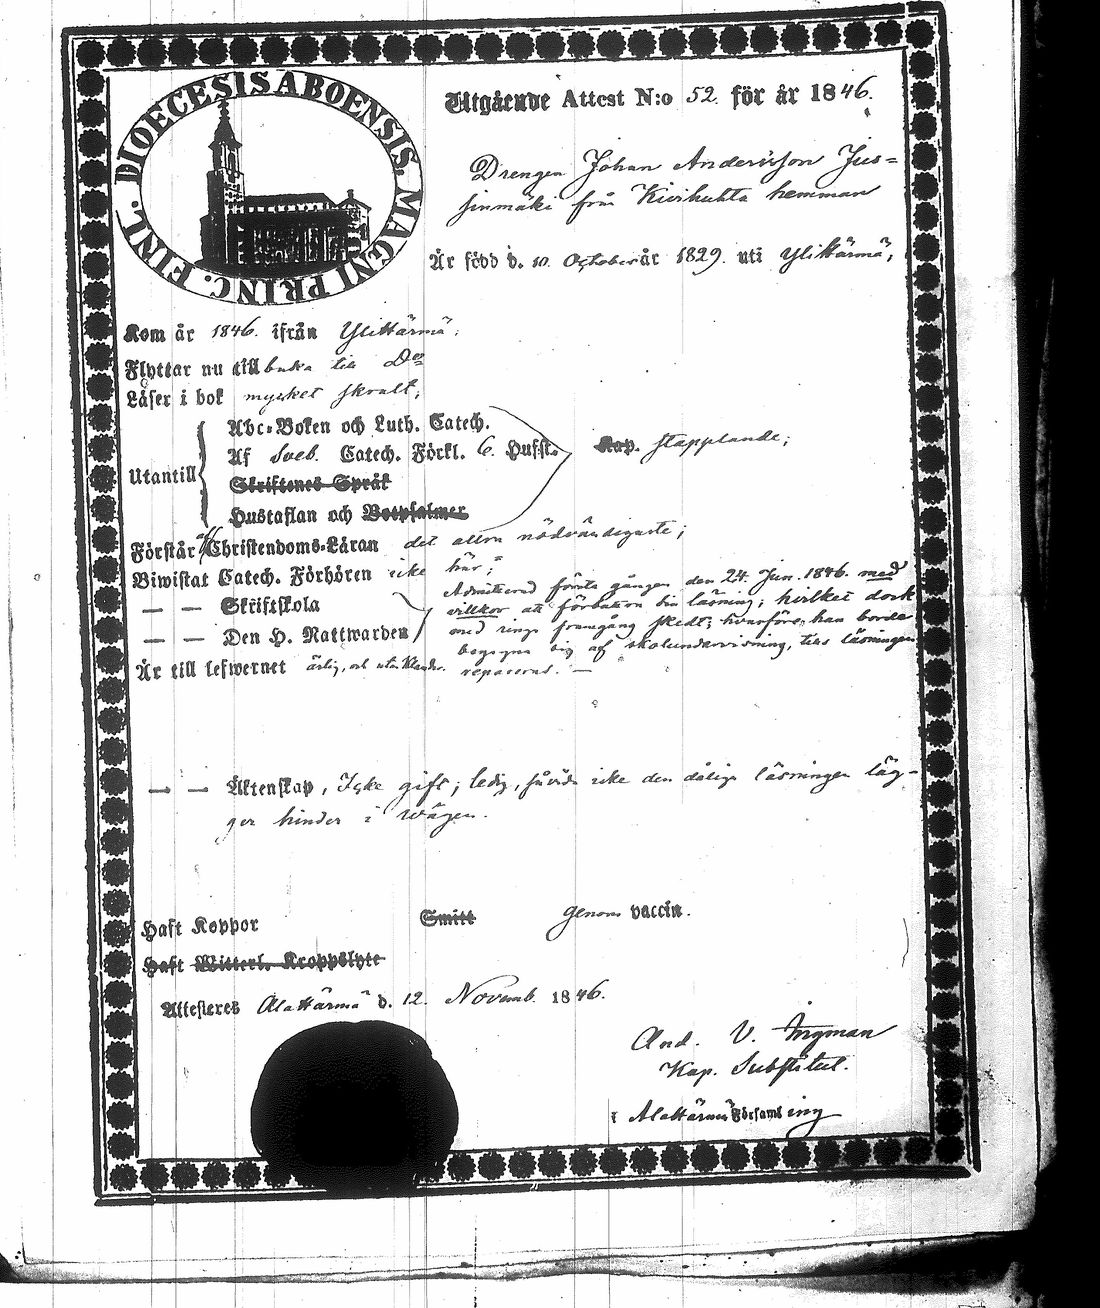 DIOECESIS ABOENSIS. MAGNI PRINC. FINL.
Utgående Attest N:o 52. för år 1846.
Drengen Johan Andersson Jus=
sinmäki från Kivihuhta hemman
Är född d. 10. October år 1829. uti Ylikärmä;
Kom år 1846. ifrån Ylikärmä;
Flyttar nu till baka till Do
Läser i bok mycket skralt;
Abc-Boken och Luth. Catech.
Af Sveb. Catech. Förkl. 6. Hufst. Kap. stapplande;
Utantill
Skriftenes Språk
Hustaflan och Botpsalmer
Förstår af Christendoms-Läran det allra nödvändigaste;
Biwistat Catech. Förhören icke här;
Admitterad första gången den 24. Jun. 1846. med
— — Skriftskola
villkor att förbättra sin läsning; hvilket dock
med ringa framgång skedt; hvarföre han borde
— — Den H. Nattwarden
begagna sig af skolundervisning, tills läsningen
Är till lefwernet ärlig, och utan klander. reparerats. —
— — Äktenskap, Icke gift; ledig, såvida icke den dåliga läsningen läg-
ger hinder i vägen.
Haft Koppor Smitt genom vaccin.
Haft Witterl. Kroppslyte
Attesteras Alakärmä d. 12. Novemb. 1846.
And. V. Ingman
Kap. Substitut.
i Alakärmä Församling